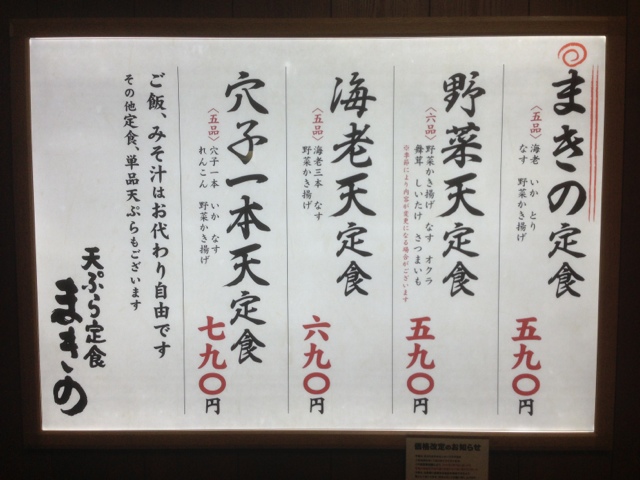 まきの定食
〈五品〉
海老 いか とり
なす 野菜かき揚げ
五九〇円
野菜天定食
〈六品〉
野菜かき揚げ なす オクラ
舞茸 しいたけ さつまいも
※季節により内容が変更になる場合がございます
五九〇円
海老天定食
〈五品〉
海老三本 なす
野菜かき揚げ
六九〇円
穴子一本天定食
〈五品〉
穴子一本 いか なす
れんこん 野菜かき揚げ
七九〇円
ご飯、みそ汁はお代わり自由です
その他定食、単品天ぷらもございます
天ぷら定食
まきの
価格改定のお知らせ